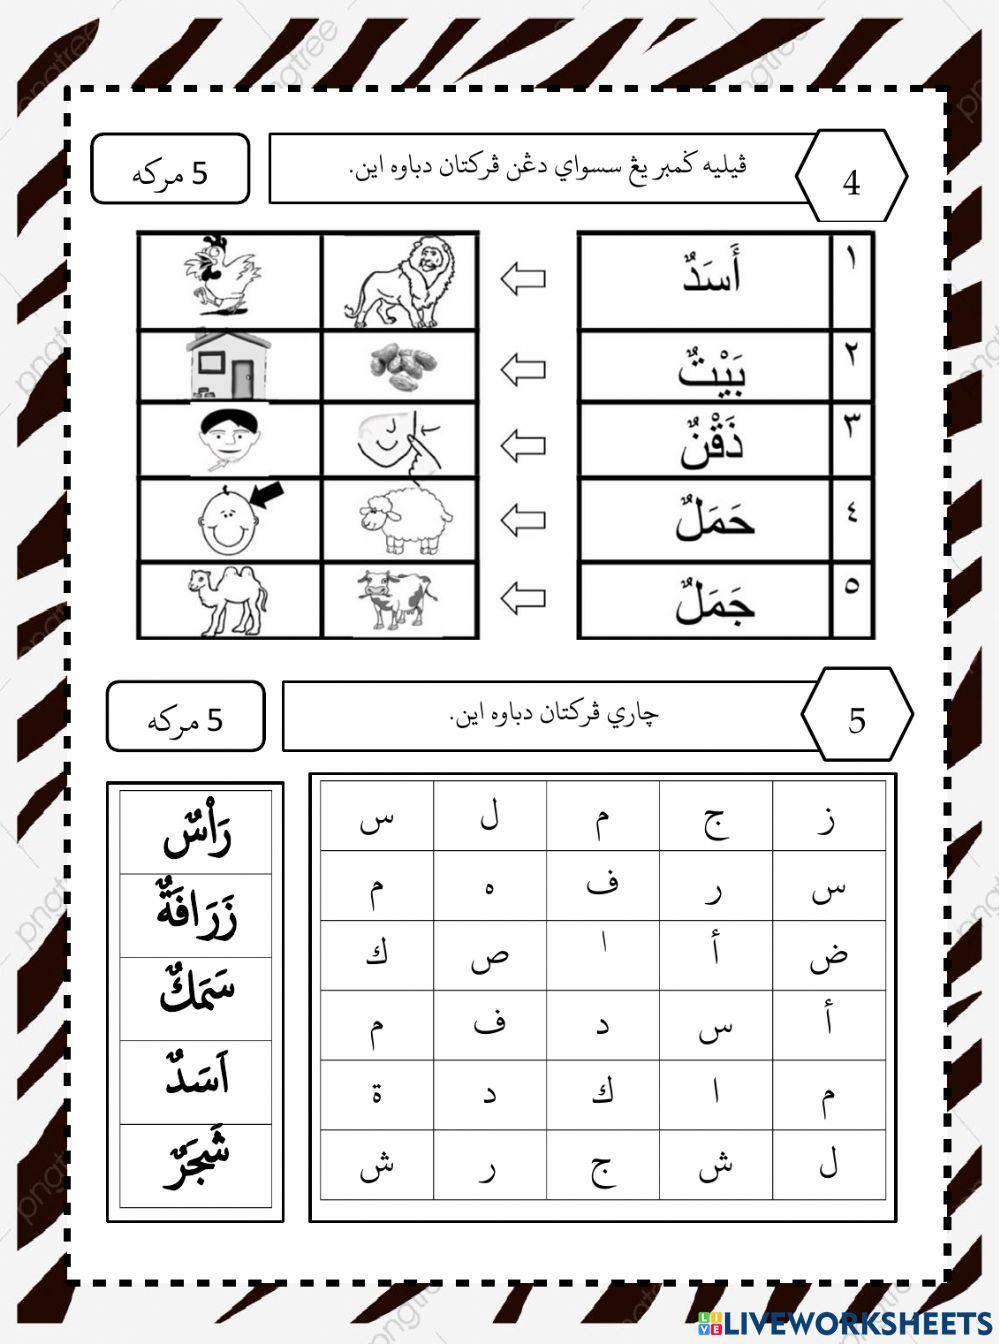 4
ڤيليه ݢمبر يڠ سسواي دڠن ڤركتان دباوه اين.
5 مركه
١ أَسَدٌ
٢ بَيْتٌ
٣ ذَقْنٌ
٤ حَمَلٌ
٥ جَمَلٌ
5
چاري ڤركتان دباوه اين.
5 مركه
ز ج م ل س
س ر ف ه م
ض أ ا ص ك
أ س د ف م
م ا ك د ة
ل ش ج ر ش
رَأْسٌ
زَرَافَةٌ
سَمَكٌ
اَسَدٌ
شَجَرٌ
LIVEWORKSHEETS
pngtree